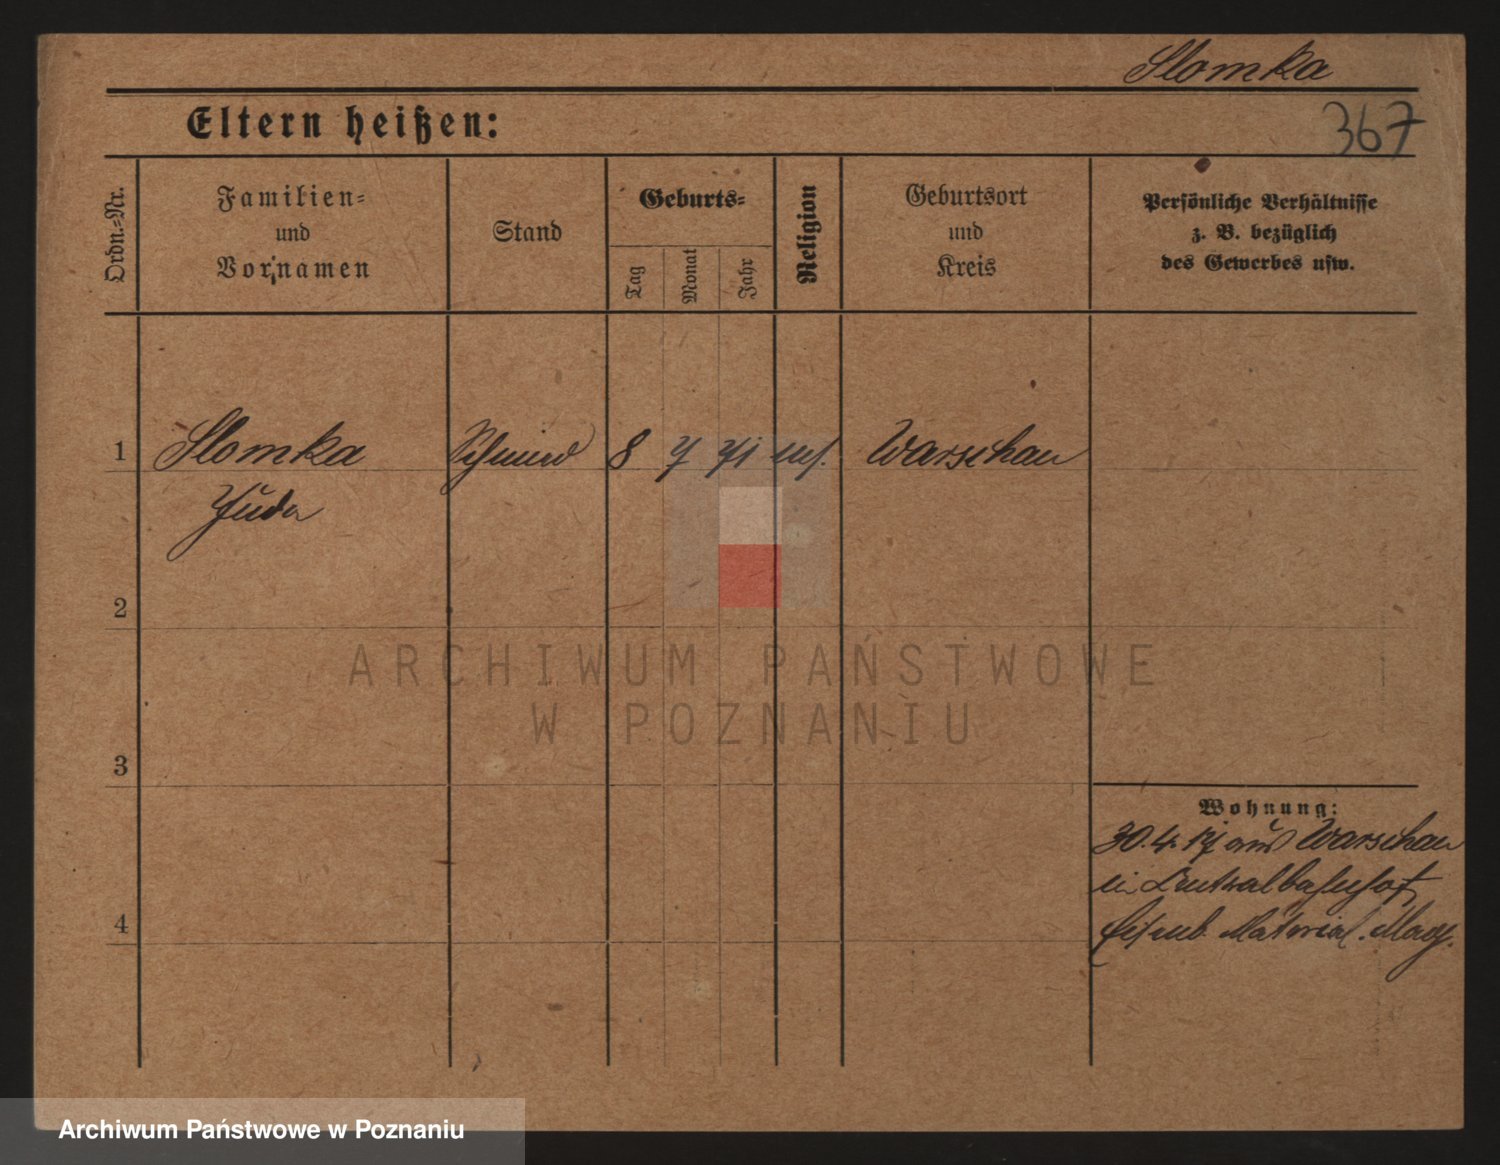 Slomka
Eltern heißen:
367
Ordn.-Nr.
Familien-
und
Vornamen
Stand
Geburts-
Tag
Monat
Jahr
Religion
Geburtsort
und
Kreis
Persönliche Verhältnisse
z. B. bezüglich
des Gewerbes usw.
1
Slomka
Schmied
8
7
71
Warschau
Juda
2
ARCHIWUM PAŃSTWOWE
W POZNANIU
3
Wohnung:
30.4.17 aus Warschau
in Zentralbahnhof
4
Eisenb. Material. Mag.
Archiwum Państwowe w Poznaniu